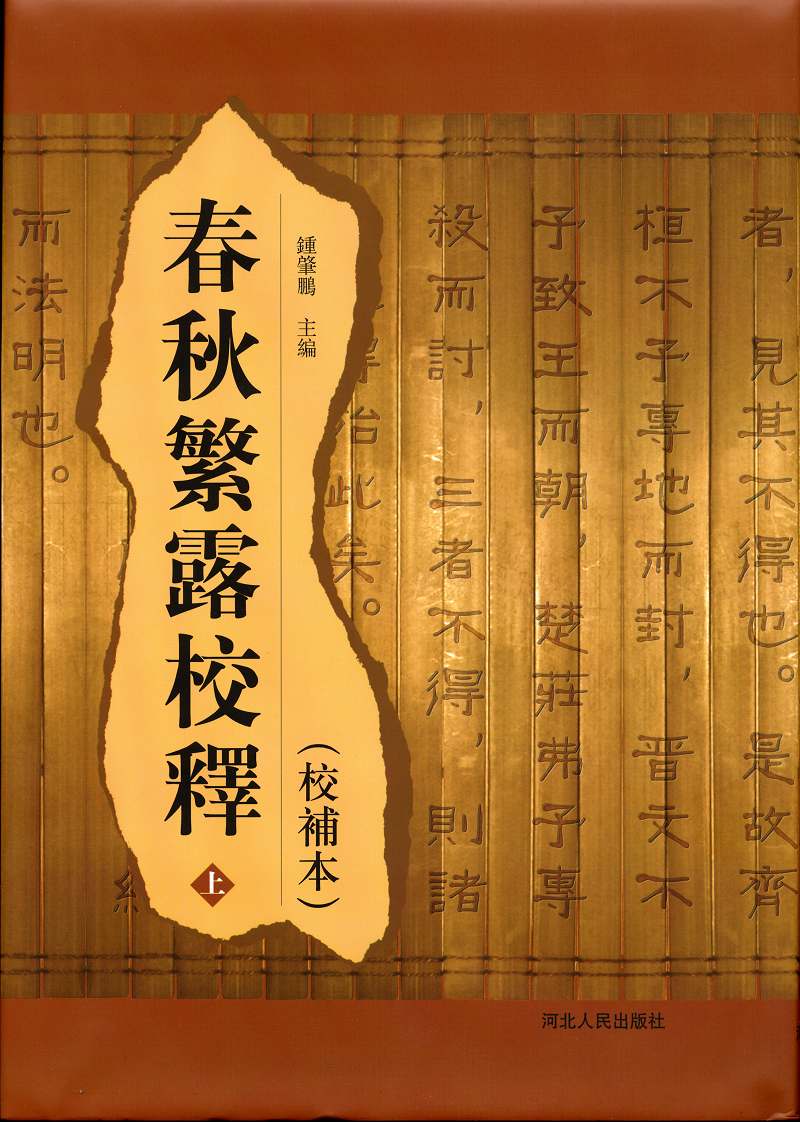 者，見其不得也。是故齊
桓不予專地而封，晋文不
予致王而朝，楚莊弗予專
殺而討，三者不得，則諸
殆此矣。
而法明也。
鍾肇鵬 主編
（校補本）
春秋繁露校釋
上
河北人民出版社